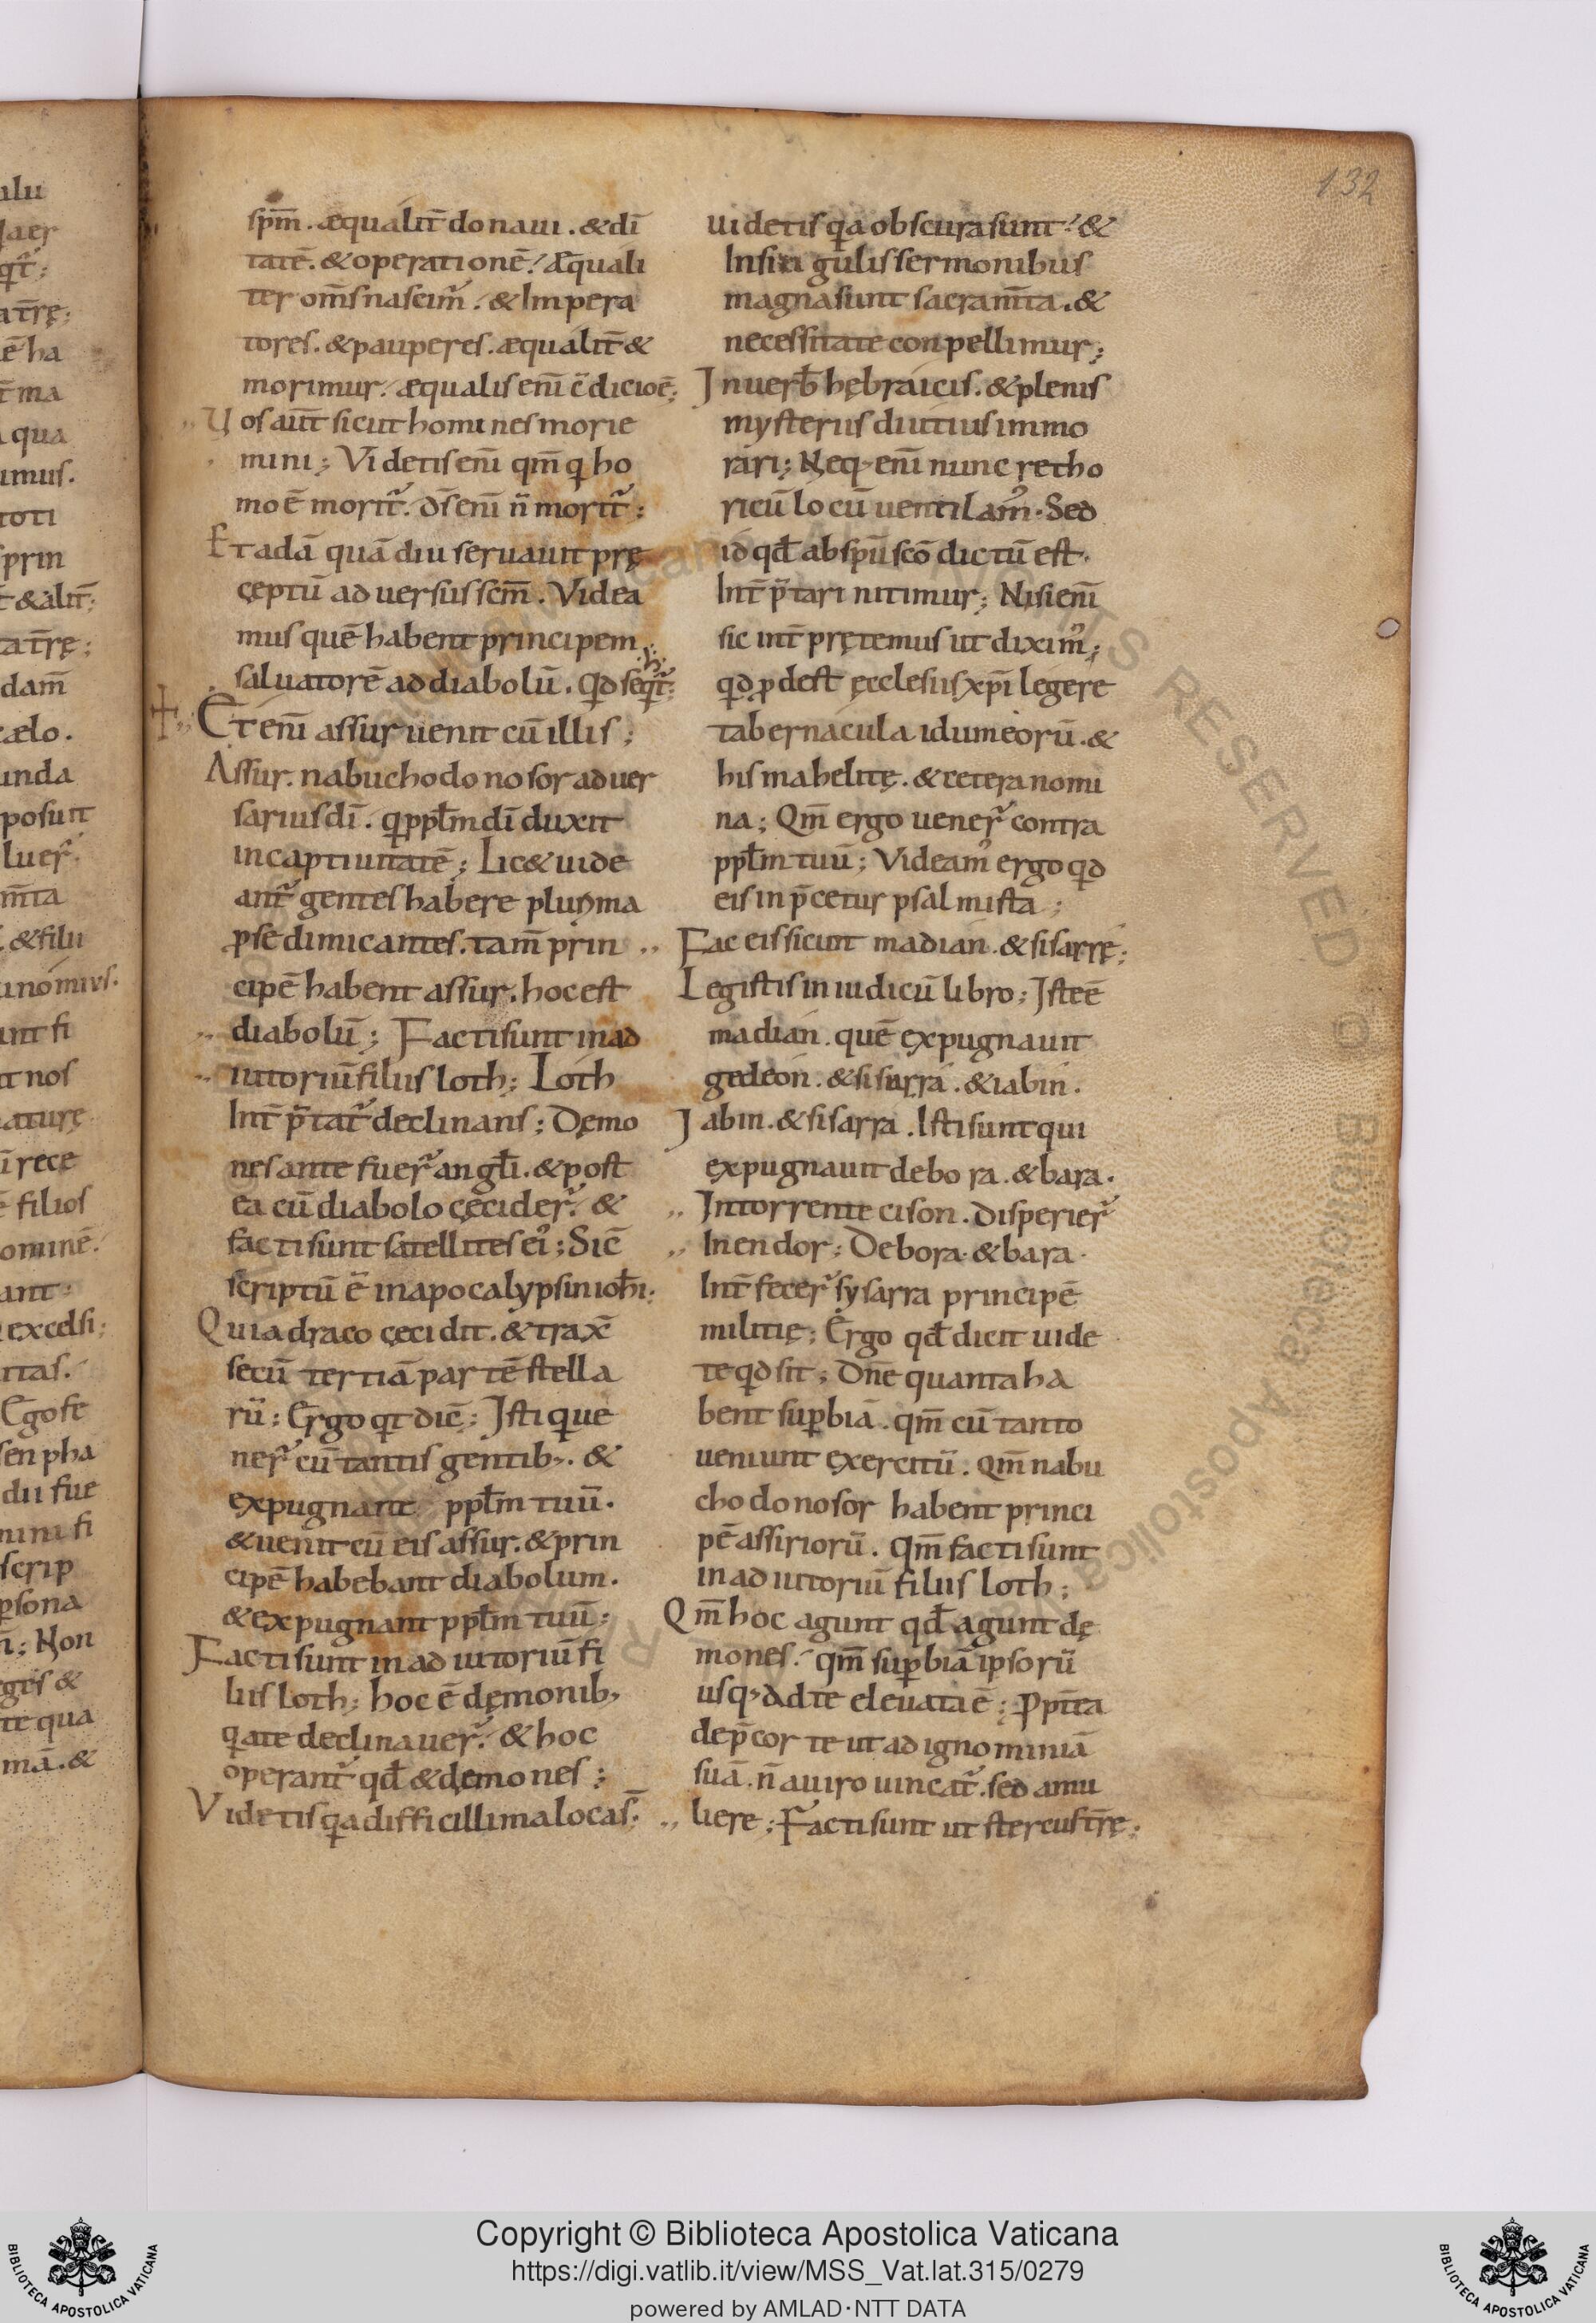 132
sp̄m. æqualit̄ donaui. & di
tatē. & operationē. Æquali
ter om̄s nascim̄. & Impera
tores. & pauperes. æqualit̄ &
morimur. æqualis eni c̄dicioē;
Uos aut̄ sicut homines morie
mini; Videtis eni qm̄ q ho
mo ē morit̄. d̄s eni n̄ morit̄;
Et adā quā diu seruauit prę
ceptū aduersus sem̄. Videa
mus quē habent principem
saluatorē ad diabolū. Qd seqt̄;
Et eni assur uenit cū illis;
Assur. nabuchodonosor aduer
sarius di. q pplm̄ di duxit
in captiuitatē; Lic& uide
ant̄ gentes habere plurima
ꝓ se dimicantes. tam̄ prin
cipē habent assur. hoc est
diabolū; Facti sunt in ad
iutoriū filiis loth; Loth
Int̄ p̄tat̄ declinans; Dęmo
nes ante fuer̄ angli. & post
ea cū diabolo cecider̄. &
facti sunt satellites ei; Sic̄
scriptū ē in apocalypsin ioh̄i;
Quia draco cecidit. & trax̄
secū tertiā partē stella
rū; Ergo qt dic̄; Isti que
ner̄ cū tantis gentib;. &
expugnant pplm̄ tuū.
& uenit cū eis assur. & prin
cipē habebant diabolum.
& expugnant pplm̄ tuū;
Facti sunt in ad iutoriū fi
liis loth; hoc ē dęmonib;
q a te declinauer̄. & hoc
operant̄ qđ & dęmones;
Videtis qa difficillima loca s̄;
uidetis qa obscura sunt. &
In singulis sermonibus
magna sunt sacram̄ta. &
necessitate conpellimur;
In uerƀ hębraicis. & plenis
mysteriis diutius immo
rari; Neq; eni nunc retho
ricū locū uentilam̄. Sed
id qđ ab sp̄u sc̄o dictū est.
Int̄ p̄tari nitimur; Nisi eni
sic int̄ pręte mus ut dixim̄;
qd ꝓdest ęcclesiis xp̄i legere
tabernacula idumeorū. &
hismahelitę. & cetera nomi
na; Qm̄ ergo uener̄ contra
pplm̄ tuū; Videam̄ ergo qd
eis in p̄cetur psalmista;
Fac eis sicut madian. & sisarrę;
Legistis in iudicū libro; Iste ē
madian. quē expugnauit
gedeon. & sisarra. & iabin.
Jabin. & sisarra. Isti sunt qui
expugnauit debora. & bara.
In torrente cison. Disperier̄
In endor; Debora. & bara.
Int̄fecer̄ sysarra principē
militię; Ergo qđ dicit uide
te qd sit; Dn̄e quanta ha
bent supbiā. qm̄ cū tanto
ueniunt exercitū. Qm̄ nabu
chodonosor habent princi
pē assiriorū. Qm̄ facti sunt
in ad iutoriū filiis loth;
Qm̄ hoc agunt qđ agunt dę
mones. qm̄ supbia ipsorū
usq; ad te eleuata ē; ꝓpt̄ea
dep̄cor te ut ad ignominiā
suā. n̄ a uiro uincat̄. sed a mu
liere; Facti sunt ut stercus t̄rę;
Copyright © Biblioteca Apostolica Vaticana
https://digi.vatlib.it/view/MSS_Vat.lat.315/0279
powered by AMLAD·NTT DATA